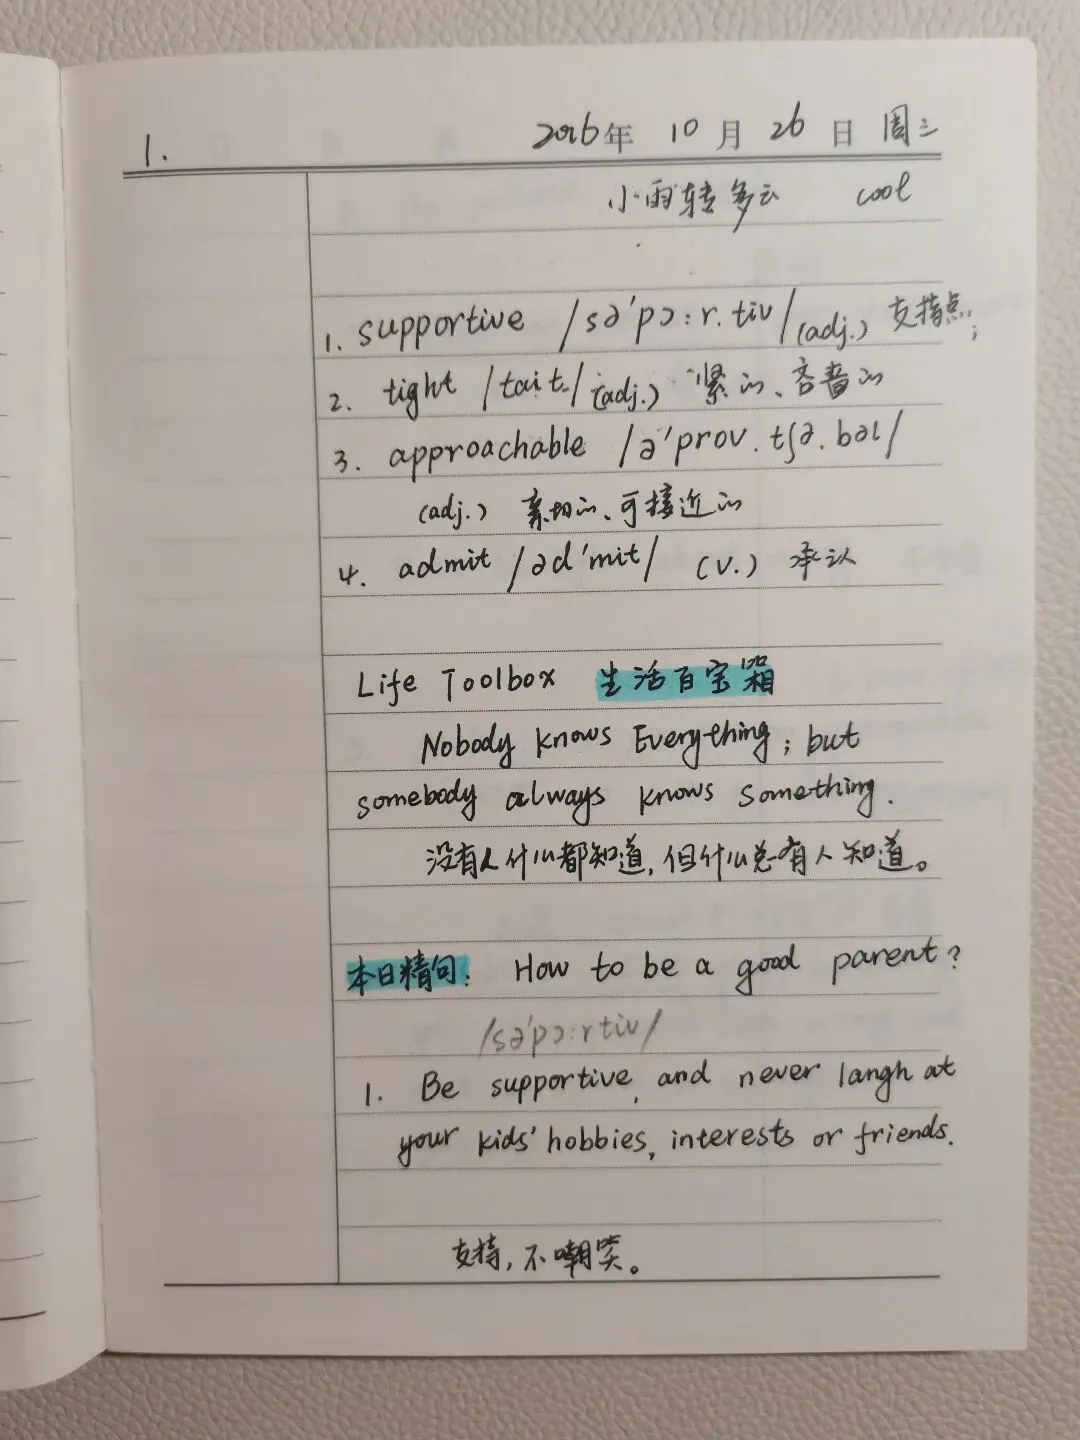 1. 2016年 10月 26日 周三
小雨转多云 cool
1. supportive /sə'pɔ:r.tiv/ (adj.) 支持点;
2. tight /tait/ (adj.) 紧的、吝啬的
3. approachable /ə'prov.tʃə.bəl/
(adj.) 亲切的、可接近的
4. admit /əd'mit/ (v.) 承认
Life Toolbox 生活百宝箱
Nobody knows Everything; but
somebody always knows something.
没有人什么都知道,但什么总有人知道。
本日精句: How to be a good parent?
/sə'pɔ:rtiv/
1. Be supportive, and never langh at
your kids' hobbies, interests or friends.
支持,不嘲笑。